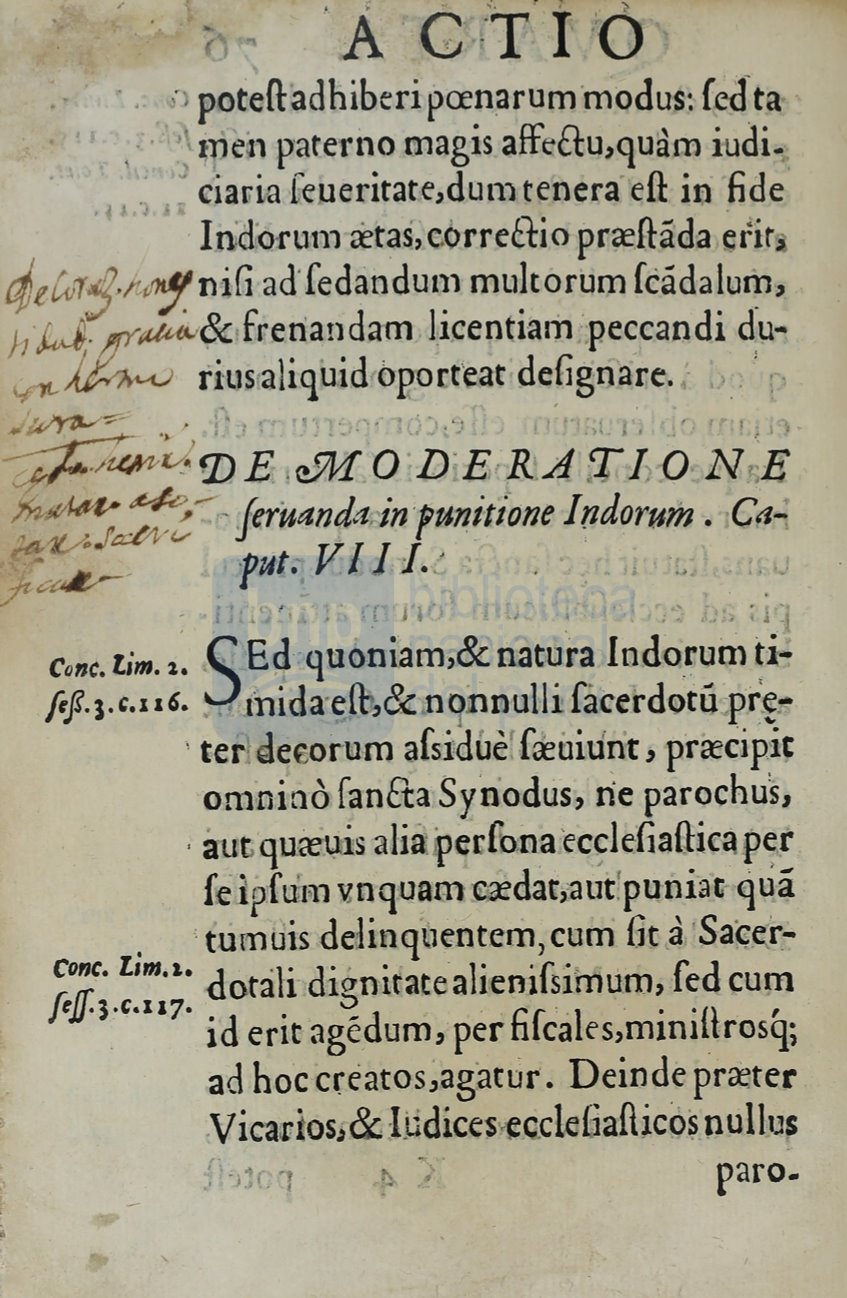 ACTIO
poteſt adhiberi pœnarum modus: ſed ta
men paterno magis affectu, quàm iudi-
ciaria ſeueritate, dum tenera eſt in fide
Indorum ætas, correctio præſtãda erit,
niſi ad ſedandum multorum ſcãdalum,
& frenandam licentiam peccandi du-
rius aliquid oporteat deſignare.
DE MODERATIONE
ſeruanda in punitione Indorum. Ca-
put. VIII.
Conc. Lim. 2.
ſeß. 3. c. 116.
SEd quoniam, & natura Indorum ti-
mida eſt, & nonnulli ſacerdotũ prę-
ter decorum aſsiduè ſæuiunt, præcipit
omninò ſancta Synodus, ne parochus,
aut quæuis alia perſona eccleſiaſtica per
ſe ipſum vnquam cædat, aut puniat quã
tumuis delinquentem, cum ſit à Sacer-
Conc. Lim. 2.
ſeſſ. 3. c. 117.
dotali dignitate alieniſsimum, ſed cum
id erit agẽdum, per fiſcales, miniſtrosq́;
ad hoc creatos, agatur. Deinde præter
Vicarios, & Iudices eccleſiaſticos nullus
paro-
biblioteca